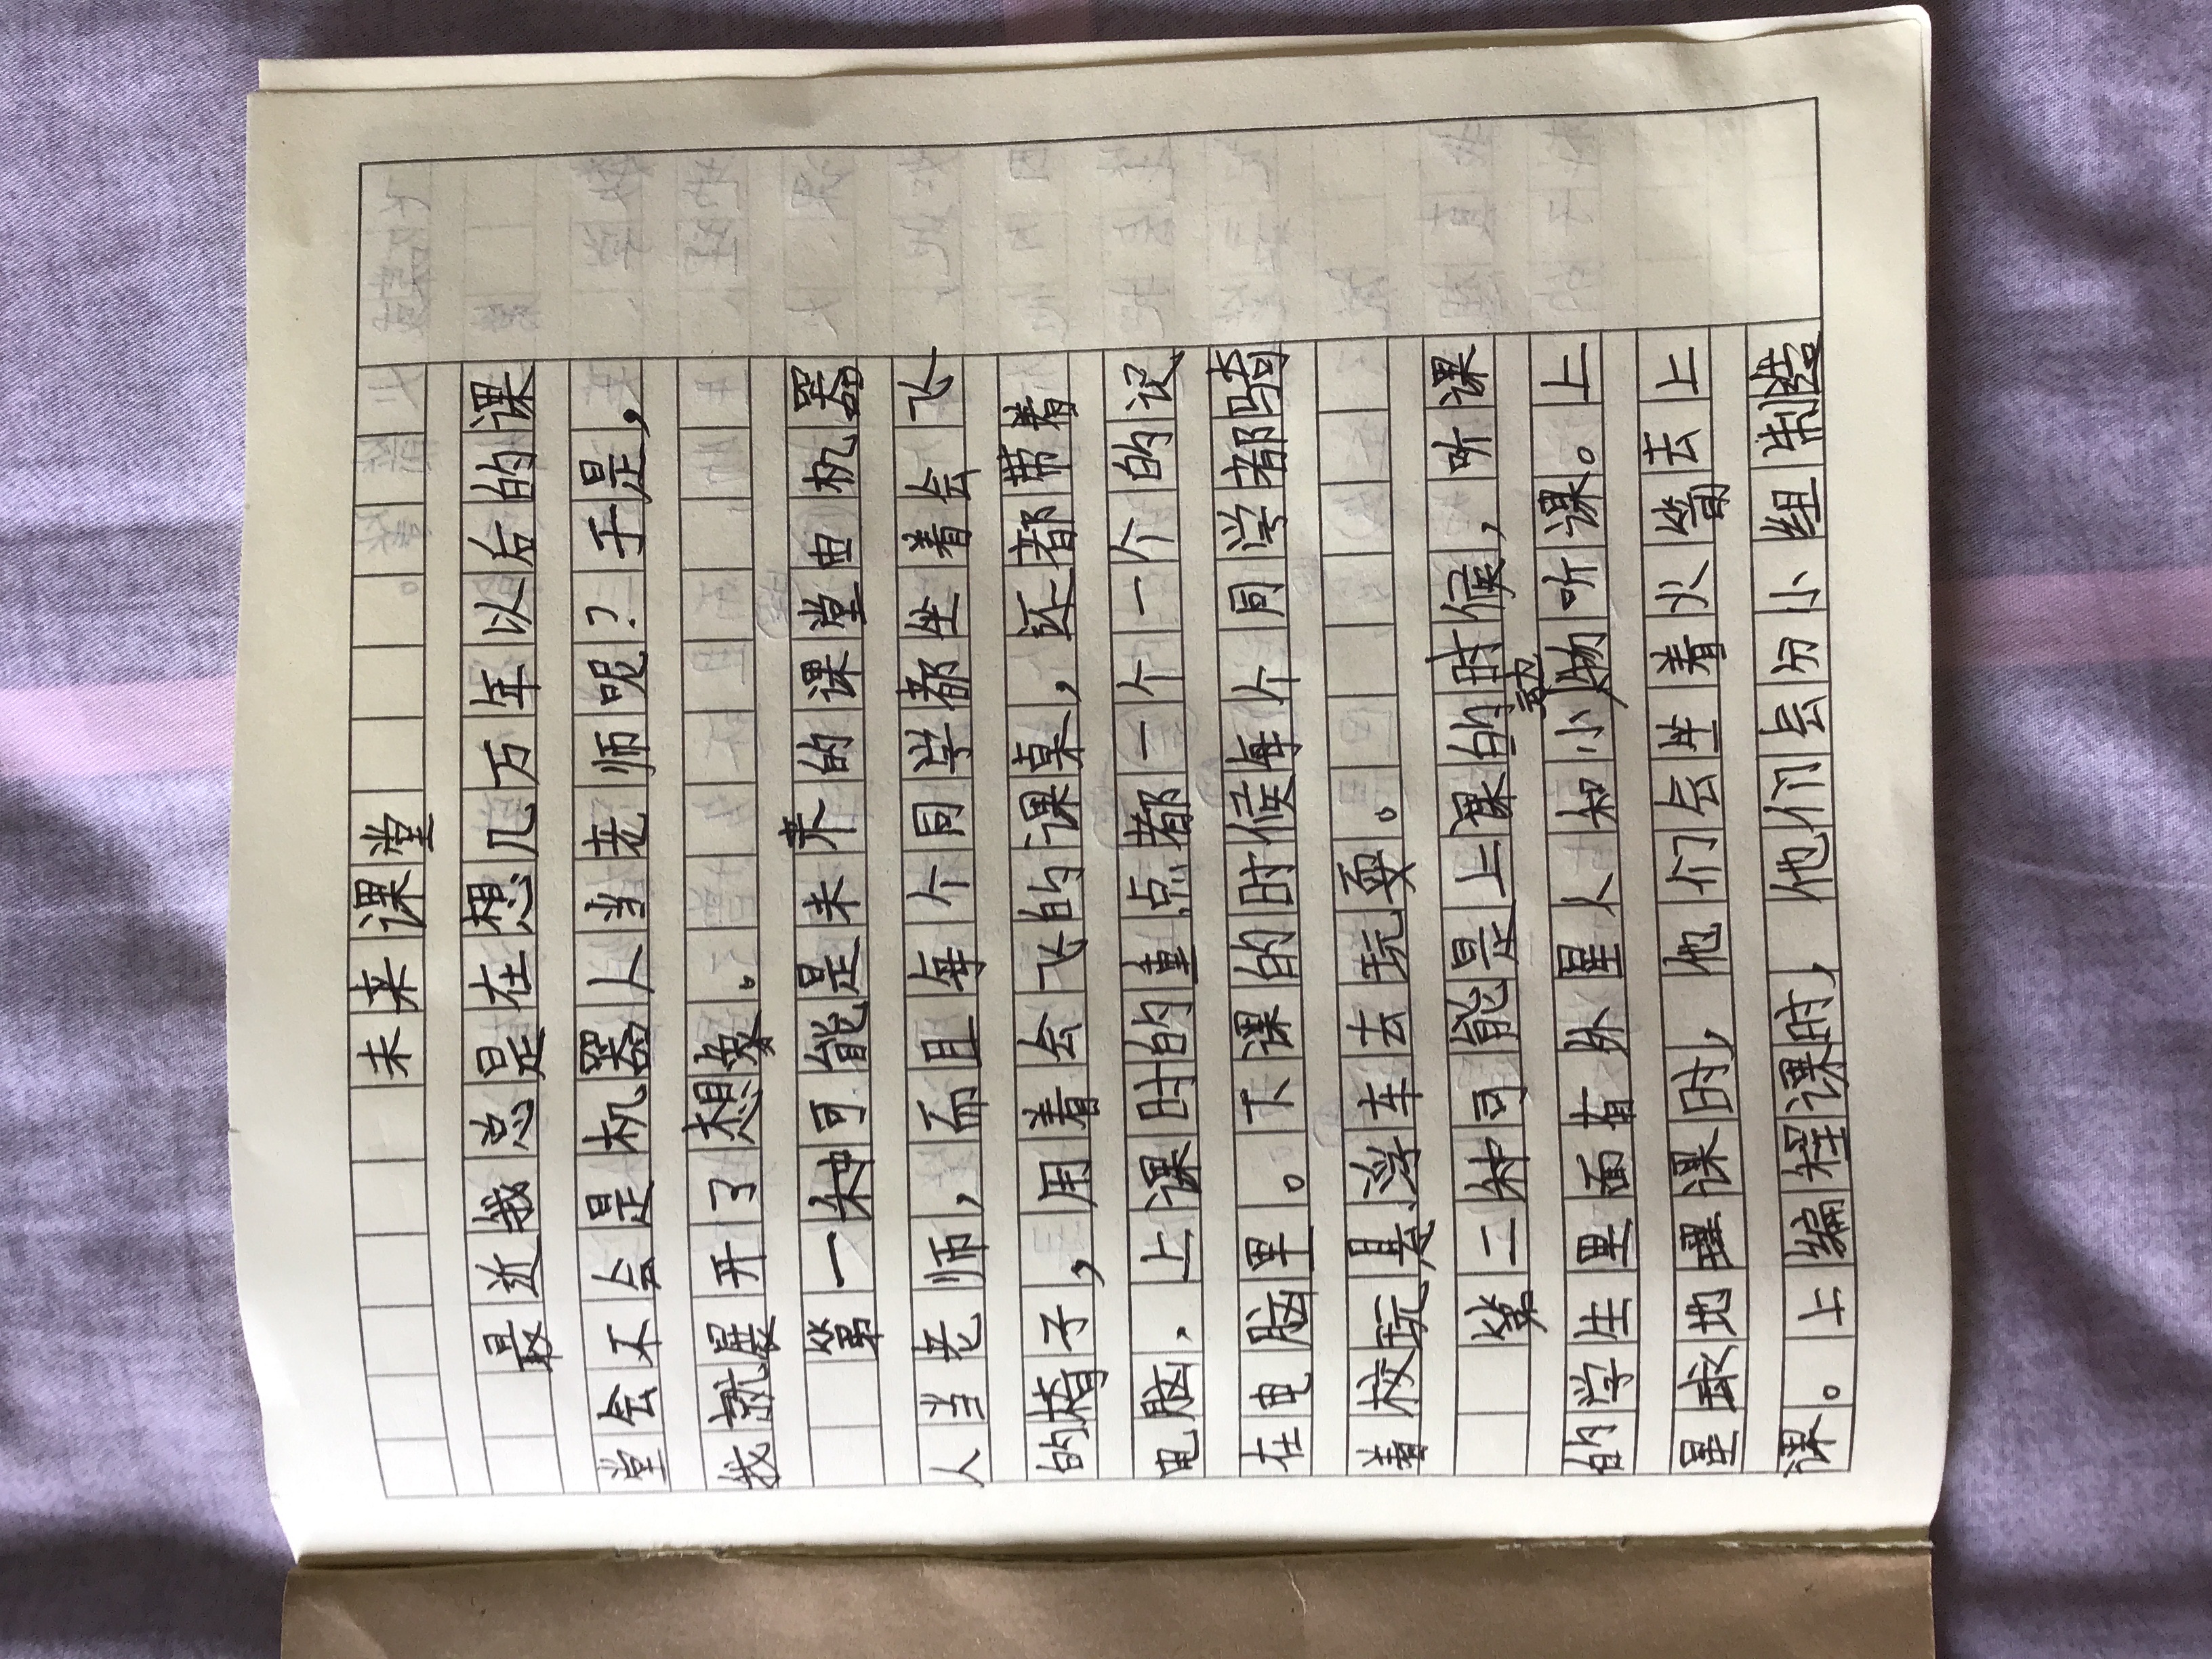 未来课堂
最近我总是在想几万年以后的课
堂会不会是机器人当老师呢？于是，
我就展开了想象。
第一种可能是未来的课堂由机器
人当老师，而且每个同学都坐着会飞
的椅子，用着会飞的课桌，还都带着
电脑，上课时的重点都一个一个的记
在电脑里。下课的时候每个同学都骑
着校玩悬浮车去玩耍。
第二种可能是上课的时候，听课
的学生里面有外星人和小动物听课。上
星球地理课时，他们会坐着火箭去上
课。上编程课时，他们会分小组制造